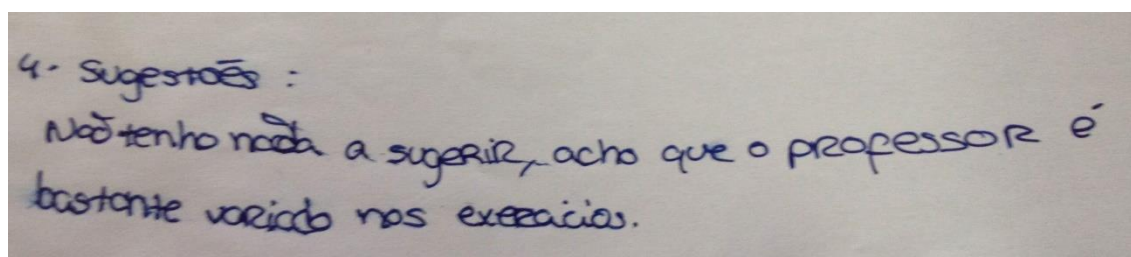 4- Sugestões :
Não tenho nada a sugerir, acho que o professor é
bastante variado nos exercícios.